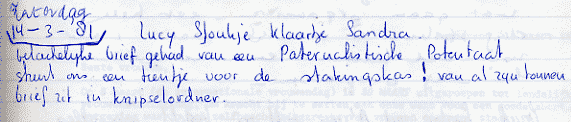 Zaterdag
14-3-81 Lucy Sjoukje Klaartje Sandra.
belachelijke brief gehad van een Paternalistische Potentaat
stuurt ons een tientje voor de stakingskas! van al zijn tonnen
brief zit in knipselordner.